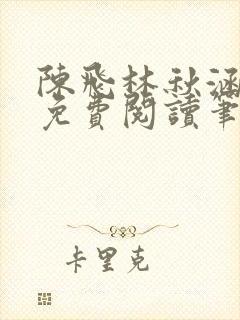 陳飛林秋涵
免費閱讀筆
卡里克